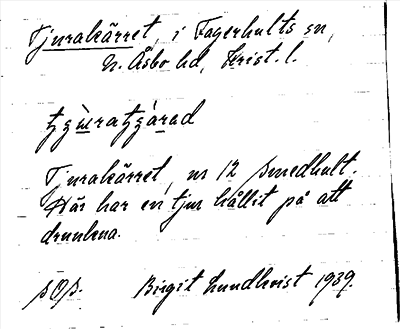 Tjurakärret, i Fagerhults sn,
n. Åsbo hd, Krist. l.
Tjurakärret, nr 12 Smedhult.
Här har en tjur hållit på att
drunkna.
Birgit Lundkvist 1939.